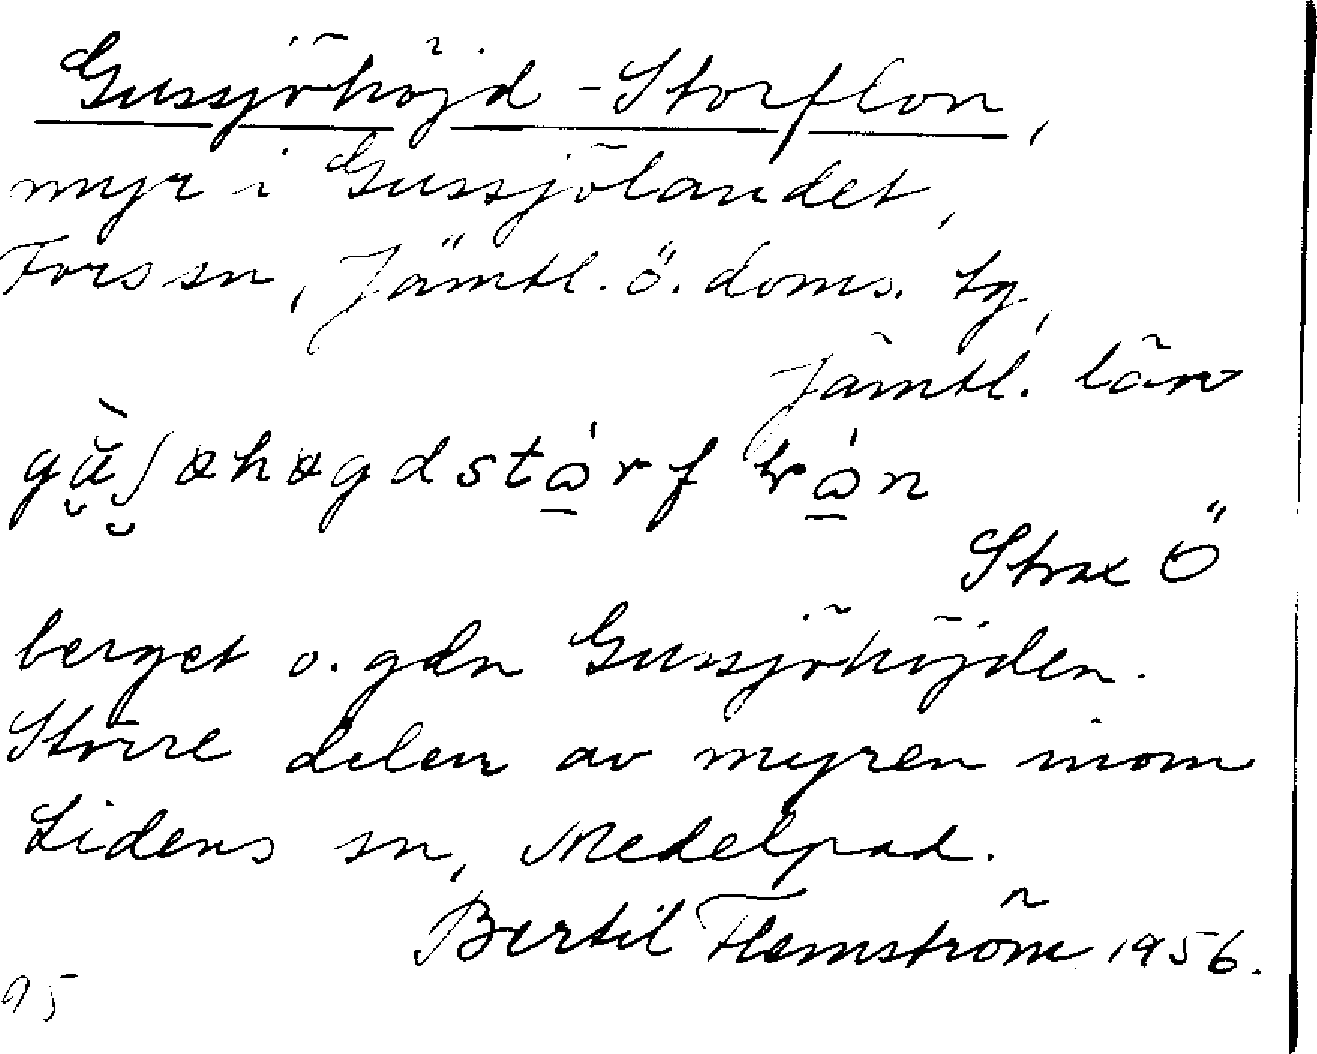 Gussjöhöjd-Storflon,
myr i Gussjölandet,
Fors sn, Jämtl. ö. doms. tg,
Jämtl. län
Strax Ö
berget o. gdn Gussjöhöjden.
Större delen av myren inom
Lidens sn, Medelpad.
Bertil Flemström 1956.
95